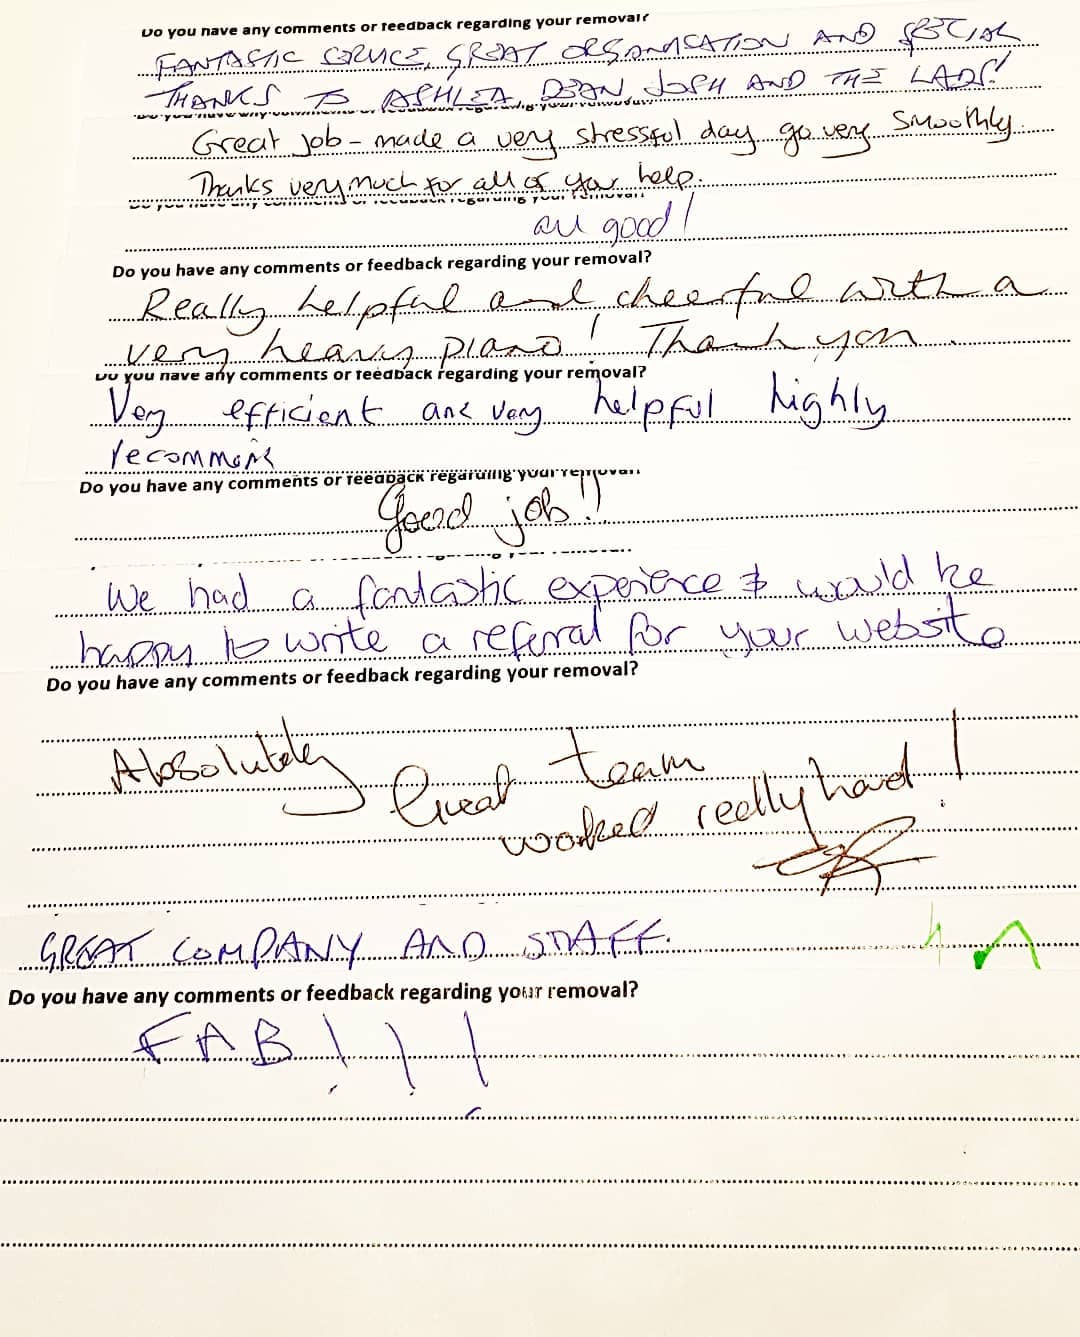 Do you have any comments or feedback regarding your removal?
FANTASTIC SERVICE, GREAT ORGANISATION AND SPECIAL
THANKS TO ASHLEA, DEAN JOSH AND THE LADS!
Do you have any comments or feedback regarding your removal?
Great job - made a very stressful day go very smoothly.
Thanks very much for all of your help.
Do you have any comments or feedback regarding your removal?
all good!
Do you have any comments or feedback regarding your removal?
Really helpful and cheerful with a
very heavy piano! Thank you.
Do you have any comments or feedback regarding your removal?
Very efficient and very helpful highly
recommend
Do you have any comments or feedback regarding your removal?
Good job!!
We had a fantastic experience & would be
happy to write a referral for your website
Do you have any comments or feedback regarding your removal?
Absolutely Great team
worked really hard!
GREAT COMPANY AND STAFF.
Do you have any comments or feedback regarding your removal?
FAB!!!